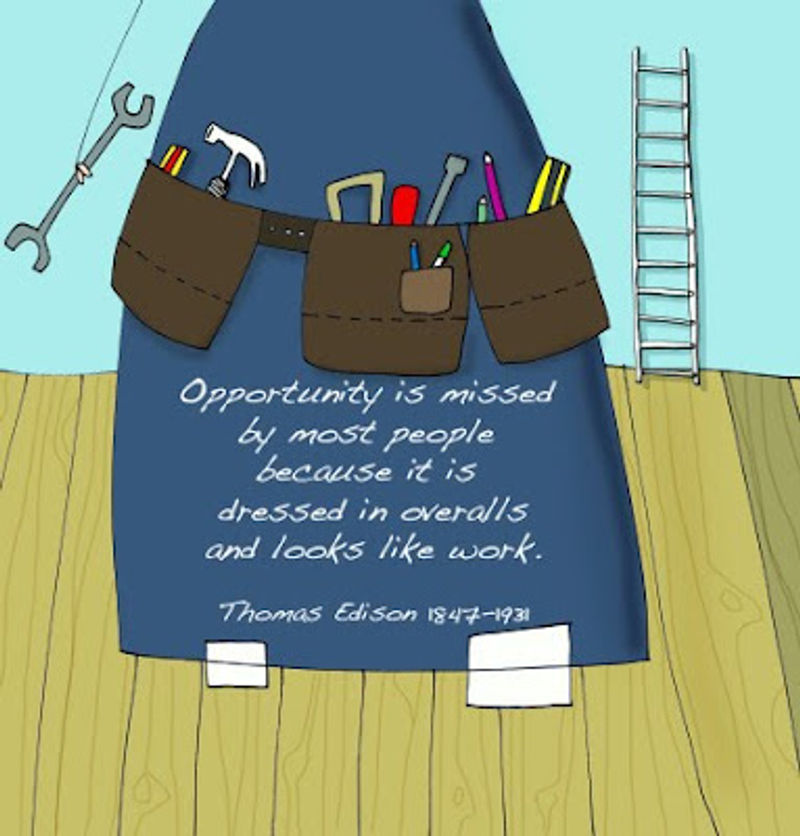 Opportunity is missed
by most people
because it is
dressed in overalls
and looks like work.
Thomas Edison 1847-1931